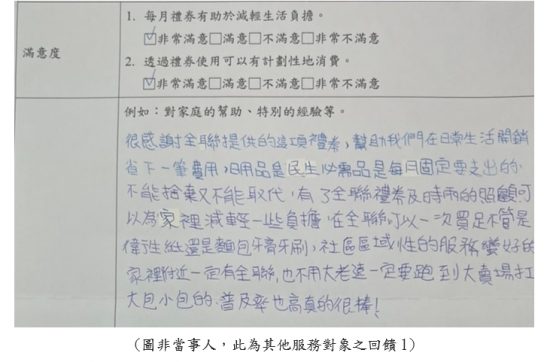 滿意度
1. 每月禮券有助於減輕生活負擔。
☑非常滿意□滿意□不滿意□非常不滿意
2. 透過禮券使用可以有計劃性地消費。
☑非常滿意□滿意□不滿意□非常不滿意
例如：對家庭的幫助、特別的經驗等。
很感謝全聯提供的這項禮券，幫助我們在日常生活開銷
省下一筆費用，日用品是民生必需品是每月固定要支出的.
不能捨棄又不能取代，有了全聯禮券及時雨的照顧可
以為家裡減輕一些負擔.在全聯可以一次買足不管是
衛生紙還是麵包牙膏牙刷，社區區域性的服務蠻好的
家裡附近一定有全聯，也不用大老遠一定要跑到大賣場扛
大包小包的.普及率也高真的很棒!
（圖非當事人，此為其他服務對象之回饋 1）